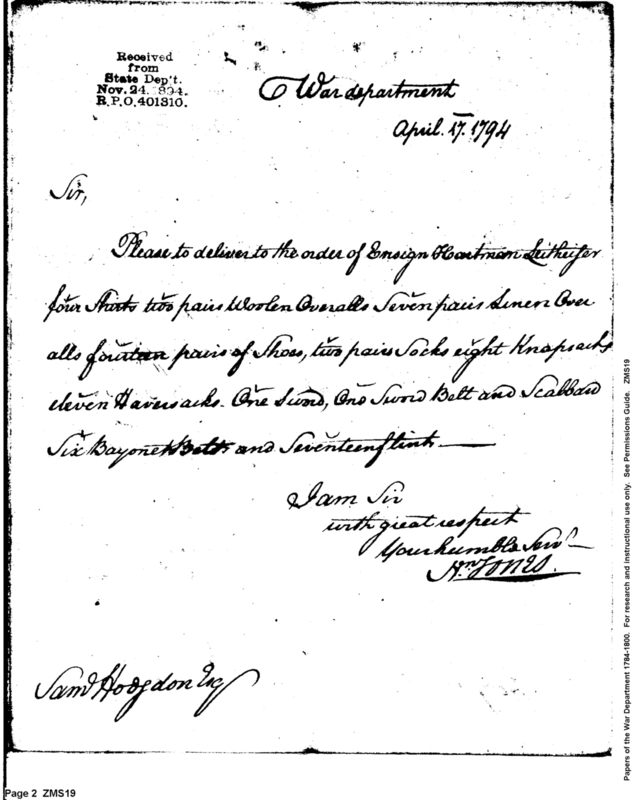 Received
from
State Dep't.
Nov. 24. 1894.
R.P.O. 401310.
War department
April. 17. 1794
Sir,
Please to deliver to the order of Ensign Hartman Leitheiser
four Shirts two pairs Woolen Overalls Seven pairs Linen Over
alls fourteen pairs of Shoes, two pairs Socks eight Knapsacks
eleven Haversacks. One Sword, One Sword Belt and Scabbard
Six Bayonet Belts and Seventeen flints
I am Sir
with great respect
Your humble Servt
Jones.
Saml Hodgdon Esq
Page 2 ZMS19
Papers of the War Department 1784-1800. For research and instructional use only. See Permissions Guide. ZMS19